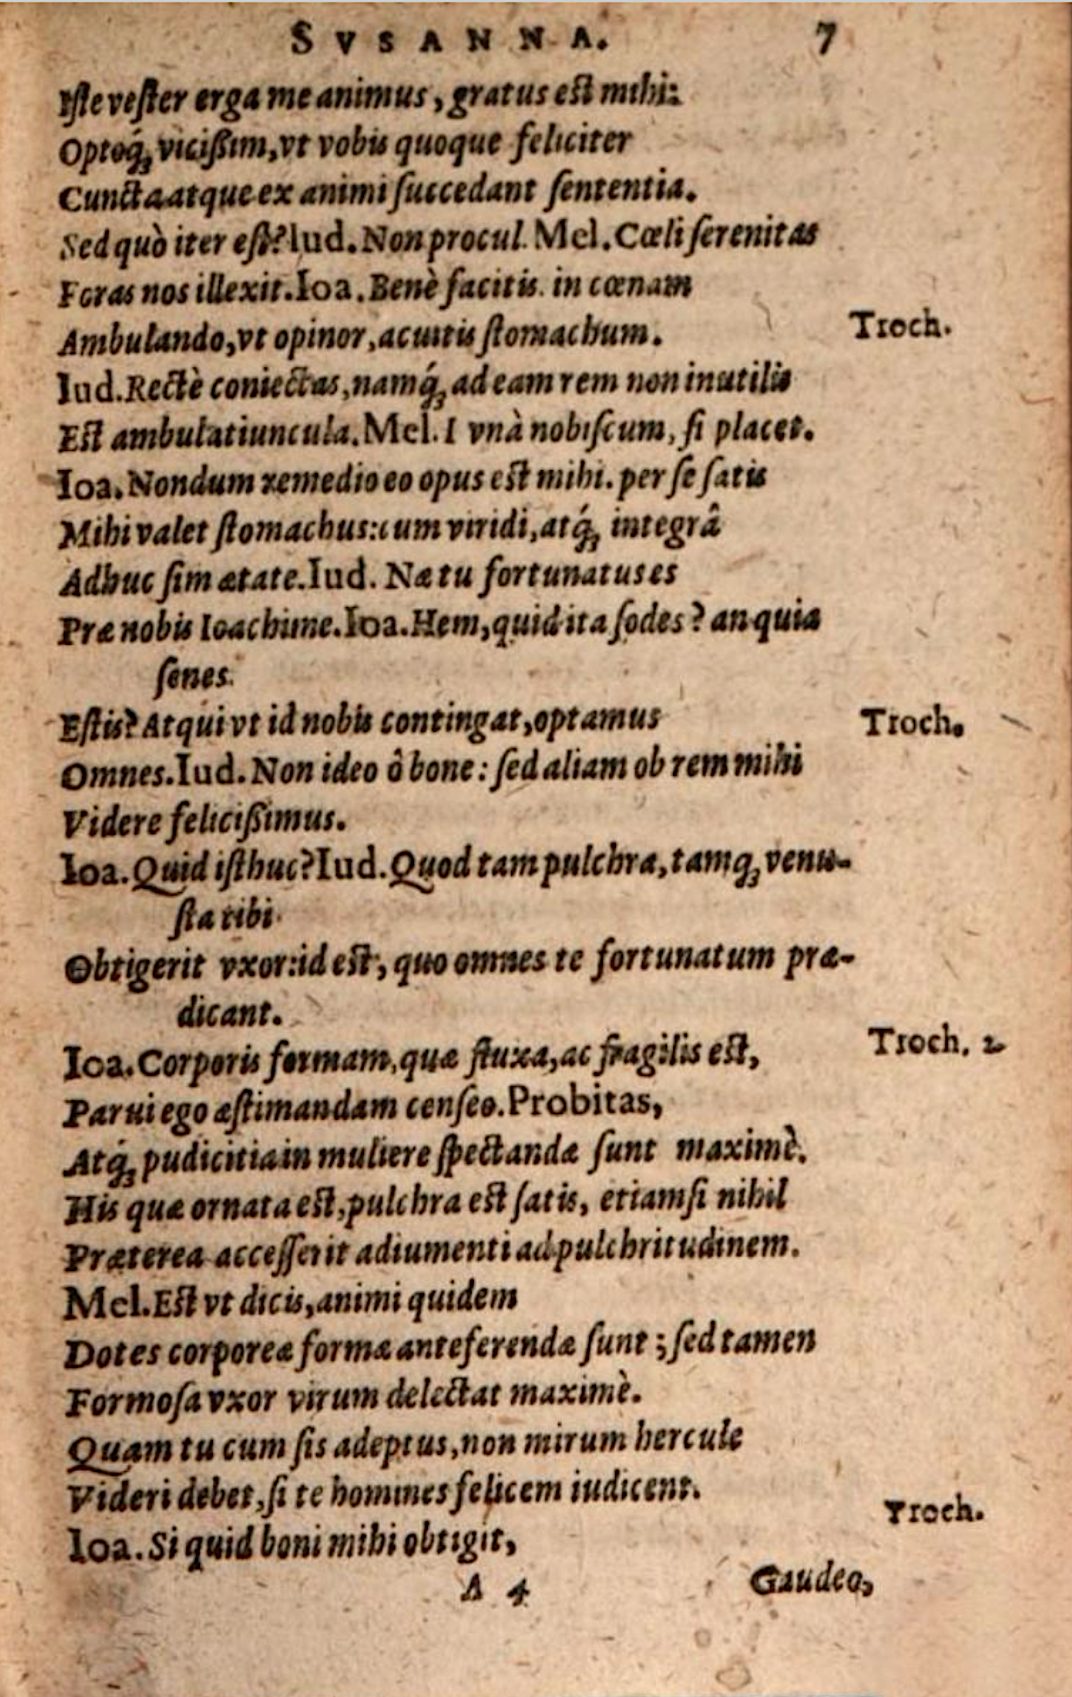 SVSANNA. 7
Iste vester erga me animus, gratus est mihi:
Optoq́ꝫ viciſsim, vt vobis quoque feliciter
Cuncta atque ex animi ſuccedant ſententia.
Sed quò iter eſt? Iud. Non procul. Mel. Cœli ſerenitas
Foras nos illexit. Ioa. Benè facitis. in cœnam
Ambulando, vt opinor, acuitis ſtomachum. Troch.
Iud. Rectè coniectas, namq́ꝫ ad eam rem non inutilis
Eſt ambulatiuncula. Mel. I vnà nobiſcum, ſi placet.
Ioa. Nondum remedio eo opus eſt mihi. per ſe ſatis
Mihi valet ſtomachus: cum viridi, atq́ꝫ integrâ
Adhuc ſim ætate. Iud. Næ tu fortunatus es
Præ nobis Ioachime. Ioa. Hem, quid ita ſodes? an quia
ſenes.
Eſtis? Atqui vt id nobis contingat, optamus Troch.
Omnes. Iud. Non ideo ô bone: ſed aliam ob rem mihi
Videre feliciſsimus.
Ioa. Quid iſthuc? Iud. Quod tam pulchra, tamqꝫ venu-
ſta tibi
Obtigerit vxor: id eſt, quo omnes te fortunatum præ-
dicant.
Ioa. Corporis formam, quæ fluxa, ac fragilis eſt, Troch. 2
Parui ego æſtimandam cenſeo. Probitas,
Atq́ꝫ pudicitia in muliere ſpectandæ ſunt maximè.
His quæ ornata eſt, pulchra eſt ſatis, etiamſi nihil
Præterea acceſſerit adiumenti ad pulchritudinem.
Mel. Eſt vt dicis, animi quidem
Dotes corporeæ formæ anteferendæ ſunt; ſed tamen
Formoſa vxor virum delectat maximè.
Quam tu cum ſis adeptus, non mirum hercule
Videri debet, ſi te homines felicem iudicent.
Ioa. Si quid boni mihi obtigit, Troch.
A 4 Gaudeo,